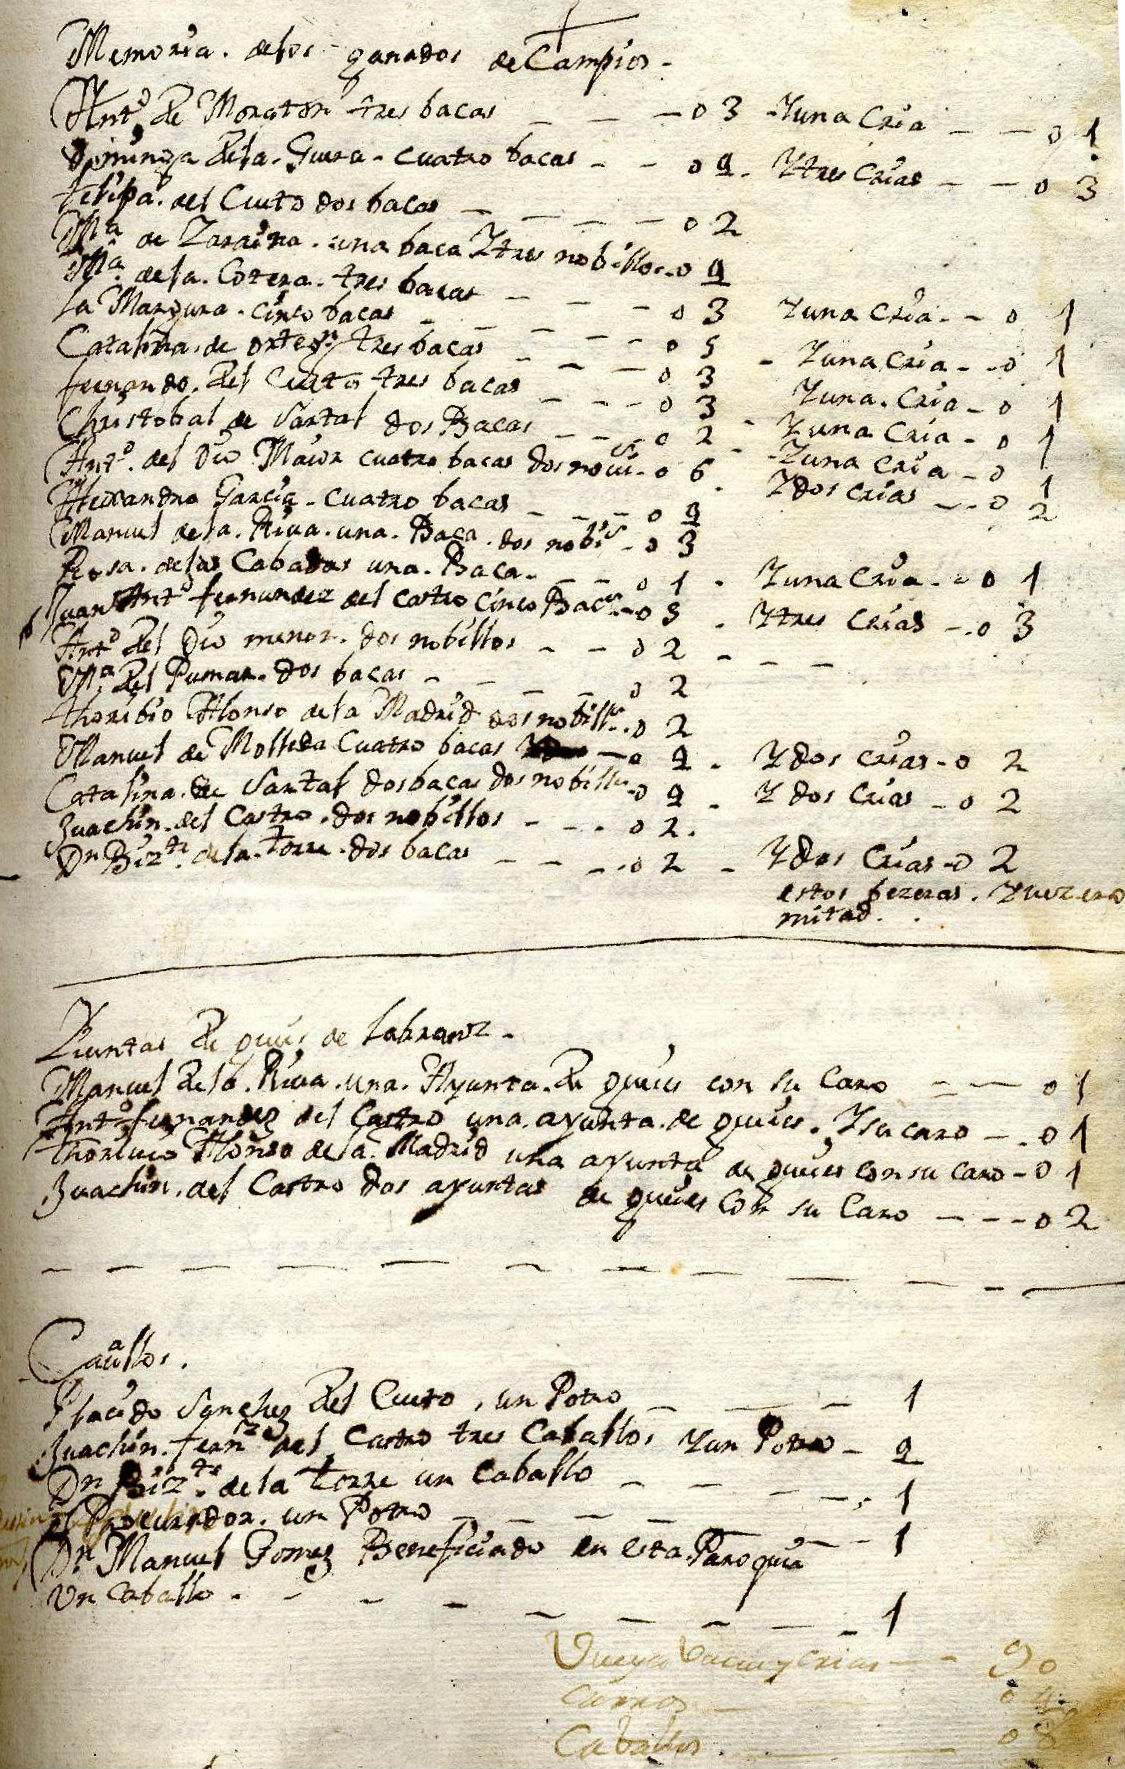 Memoria. delos ganados de Campios.
Antº de Moraton tres bacas _ _ _ 0 3 Y una Cria _ _ 0 1
Dominga dela. Guera. cuatro bacas _ _ 0 4. Y tres Crias _ _ 0 3
felipa. del Cueto dos bacas _ _ _ _ 0 2
Mª de Zaraina. una baca Y tres nobillos. 0 4
Mª de la. Cotera. tres bacas _ _ _ 0 3 Y una Cria. _ 0 1
La Marqura. cinco bacas _ _ _ _ 0 5 Y una Cria _ _ 0 1
Catalina. de tres bacas _ _ _ 0 3 Y una. Cria _ 0 1
fernando. del Cueto tres bacas _ _ _ 0 3 Y una Cria _ 0 1
Christobal de Santal dos Bacas _ _ _ 0 2 Y una Cria _ 0 1
Antº. del Dio Maior cuatro bacas dos novis _ 0 6 Y dos crias _ _ 0 2
Alexandro Garcia. cuatro bacas _ _ _ 0 4
Manuel dela. Riva. una. Baca. dos nobis _ 0 3
Rosa. delas Cabadas una. Baca. _ _ 0 1. Y una Cria. _ 0 1
Juan Antº fernandez del castro cinco Bacs. _ 0 5. Y tres Crias _ . 0 3
Antº del Dio menor. dos nobillos _ _ 0 2 _ _ _
Mª del Pumar. dos bacas _ _ _ _ 0 2
thoribio Alonso dela Madrid dos nobills. . 0 2
Manuel de Molleda Cuatro bacas _ 0 4. Y dos crias. 0 2
Catalina. de Santal dos bacas dos nobills _ 0 4. Y dos Crias _ 0 2
Juachin. del Castro. dos nobillos _ _ . 0 2.
Dn Bizte. dela. torre. dos bacas _ _ _ . 0 2 _ Y dos Crias _ 0 2
estos bezeras.
mitad.
Yuntas de gueis de labranz.
Manuel dela. Riva. una. Ayunta. de gueis con su Caro _ _ 0 1
Antº fernandez del Castro una. ayunta. de gueies. Y su caro _ . 0 1
Alonso dela. Madrid una ayunta de gueies con su caro _ 0 1
Juachin. del Castro dos ayuntas de gueies con su Caro _ _ _ 0 2
Cauallos.
Placido Sanchez del Cueto, un Potro _ _ _ 1
Juachin. fernz del Castro tres Caballos Y un Potro _ 4
Dn Bizte. de la torre un Caballo _ _ _ _ . 1
el Procurador. un Potro _ _ _ _ _ 1
Dn Manuel Gomez Beneficiado en esta Paroquia
Un Caballo. _ _ _ _ _ _ _ 1
Bueyes Bacas y crias _ _ 90
Carros _ 0 4.
Caballos. _ 0 8